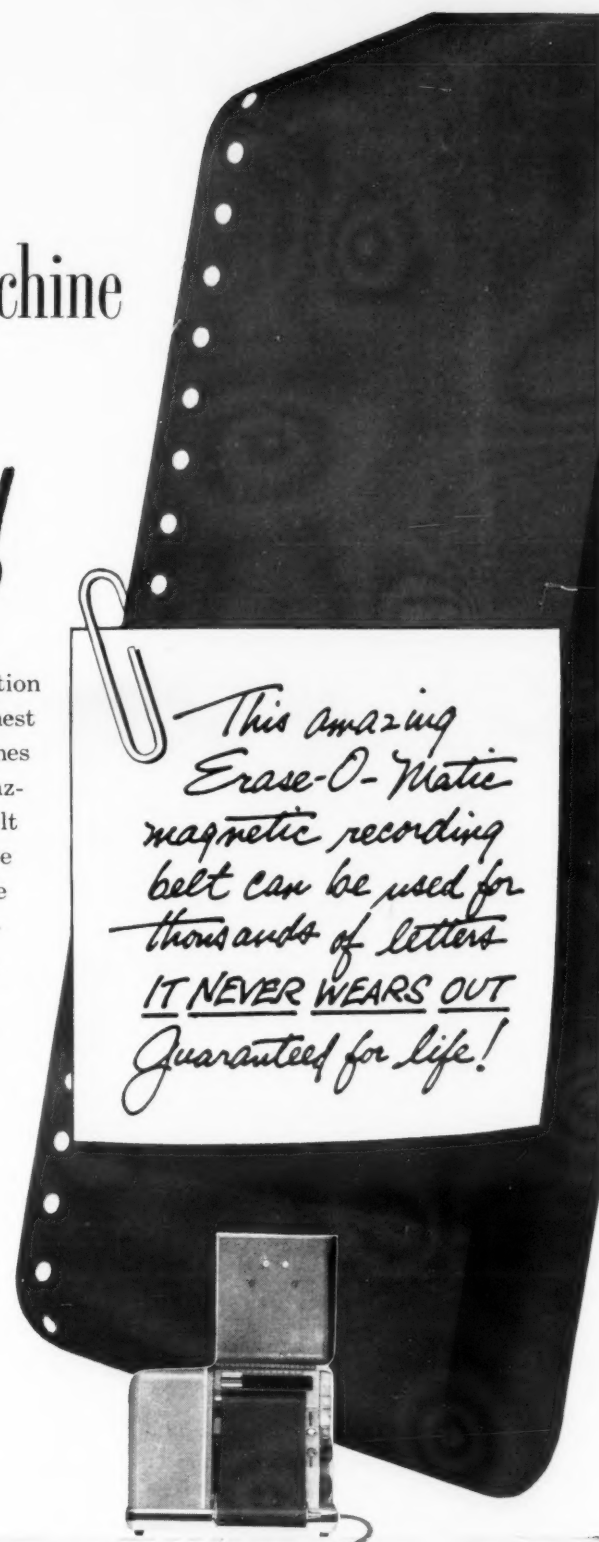 chine
tion
nest
nes
az-
lt
e
e
This amazing
Erase-O-Matic
magnetic recording
belt can be used for
thousands of letters
IT NEVER WEARS OUT
Guaranteed for life!